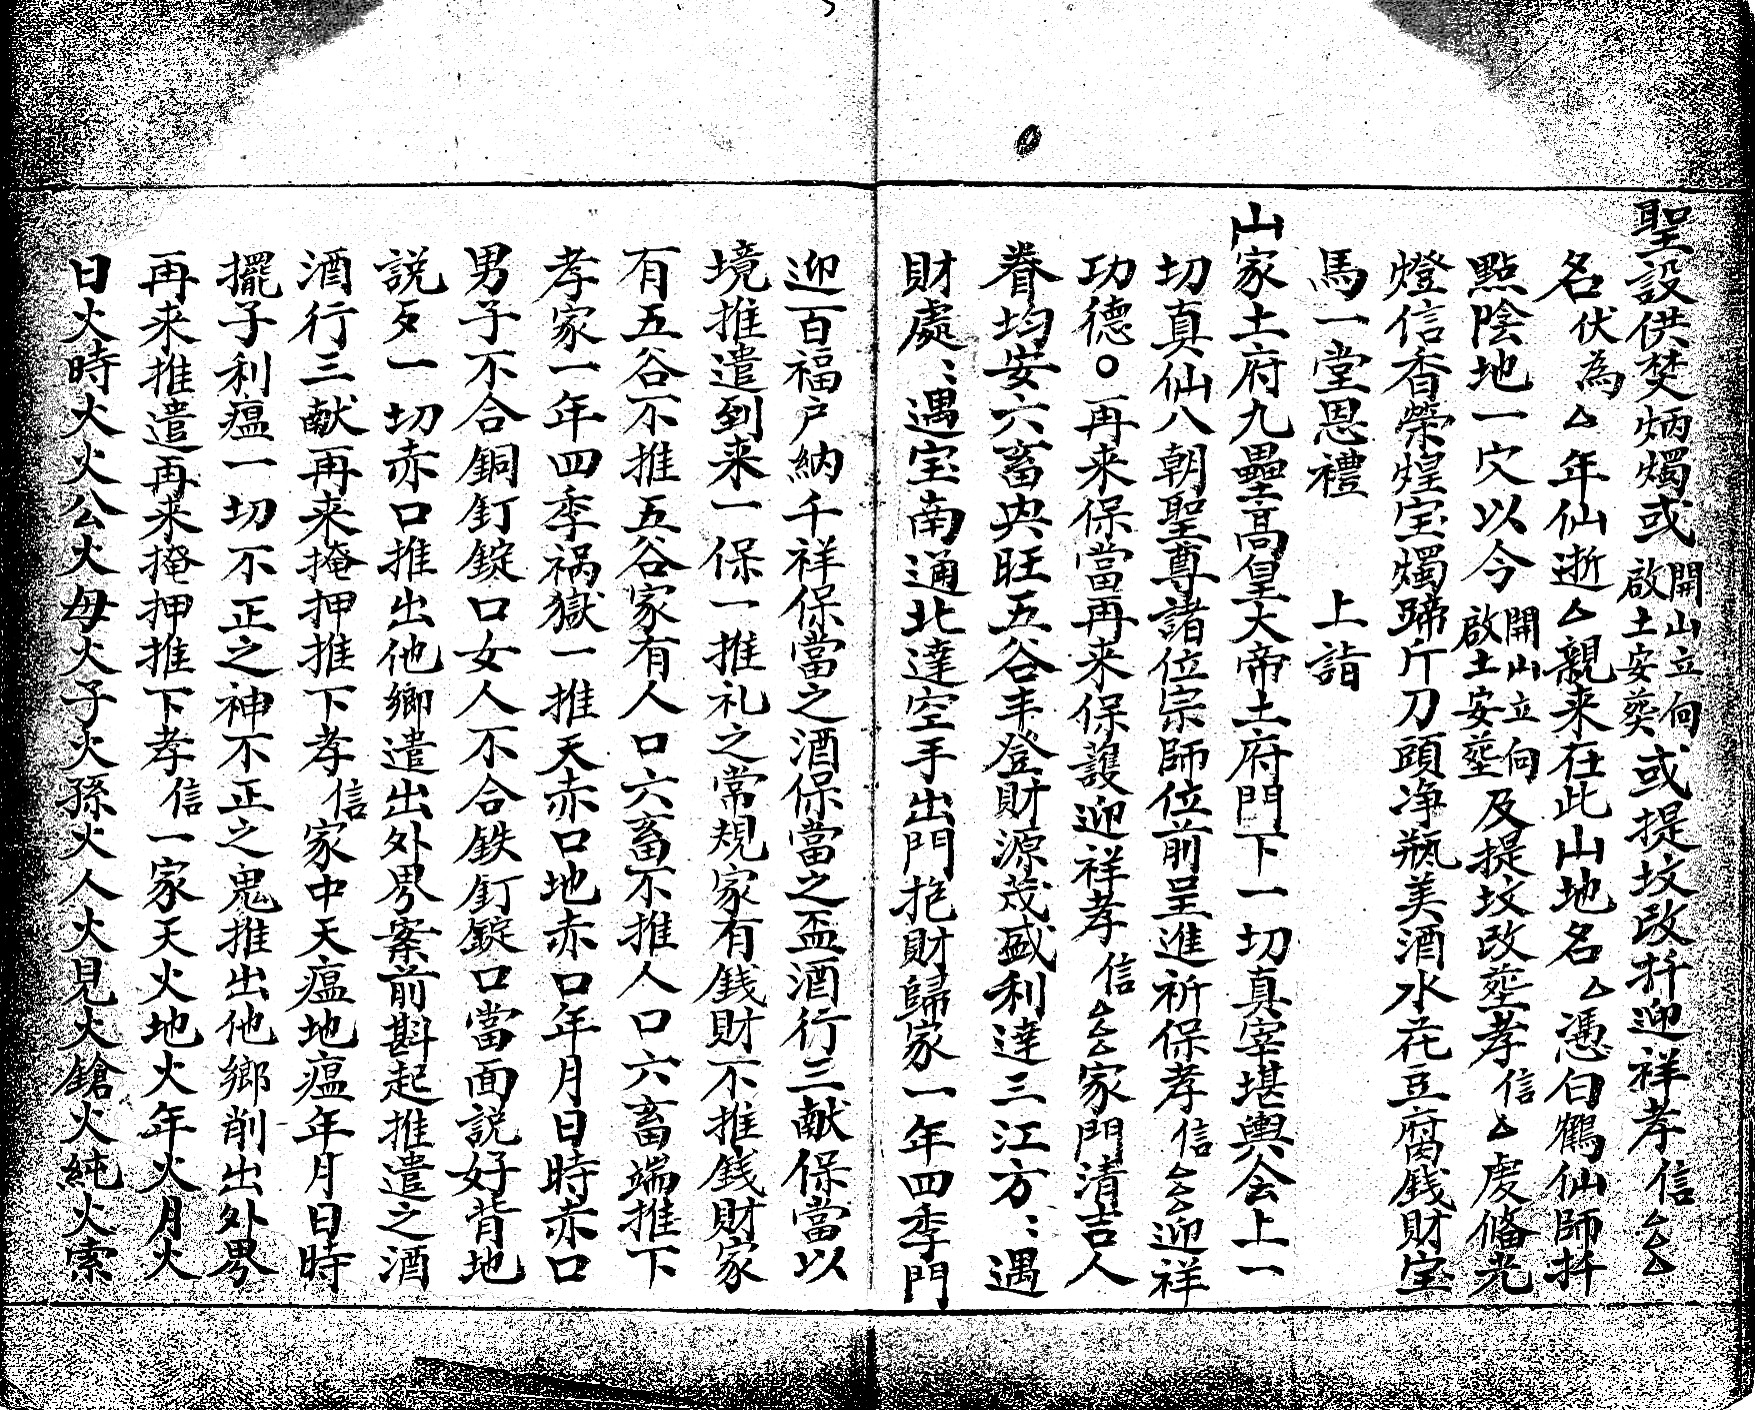 聖設供焚炳燭或開山立向啟土安葵或提坟改扦迎祥孝信厶厶厶
名伏為厶年仙逝厶親来在此山地名厶憑白鶴仙師扦
點陰地一穴以今開山立向啟土安塟及提坟改塟孝信厶虔俻光
燈信香縈煌宝燭蹄斤刀頭净瓶美酒水花豆腐銭財宝
馬一堂恩禮 上詣
山家土府九壘高皇大帝土府門下一切真宰堪輿会上一
切真仙八朝聖尊諸位宗師位前呈進祈保孝信厶厶厶迎祥
功德○再来保當再来保護迎祥孝信厶厶厶家門清吉人
眷均安六畜興旺五谷丰登財源茂盛利達三江方〻遇
財處〻遇宝南通北達空手出門抱財歸家一年四季門
迎百福户納千祥保當之酒保當之盃酒行三献保當以
境推遣到来一保一推礼之常規家有銭財不推銭財家
有五谷不推五谷家有人口六畜不推人口六畜端推下
孝家一年四季祸獄一推天赤口地赤口年月日時赤口
男子不合銅釘錠口女人不合鉄釘錠口當面説好背地
説歹一切赤口推出他鄉遣出外界案前斟起推遣之酒
酒行三献再来掩押推下孝信家中天瘟地瘟年月日時
擺子利瘟一切不正之神不正之鬼推出他鄉削出外界
再来推遣再来掩押推下孝信一家天火地火年火月火
日火時火火公火母火子火孫火人火見火鎗火純火索